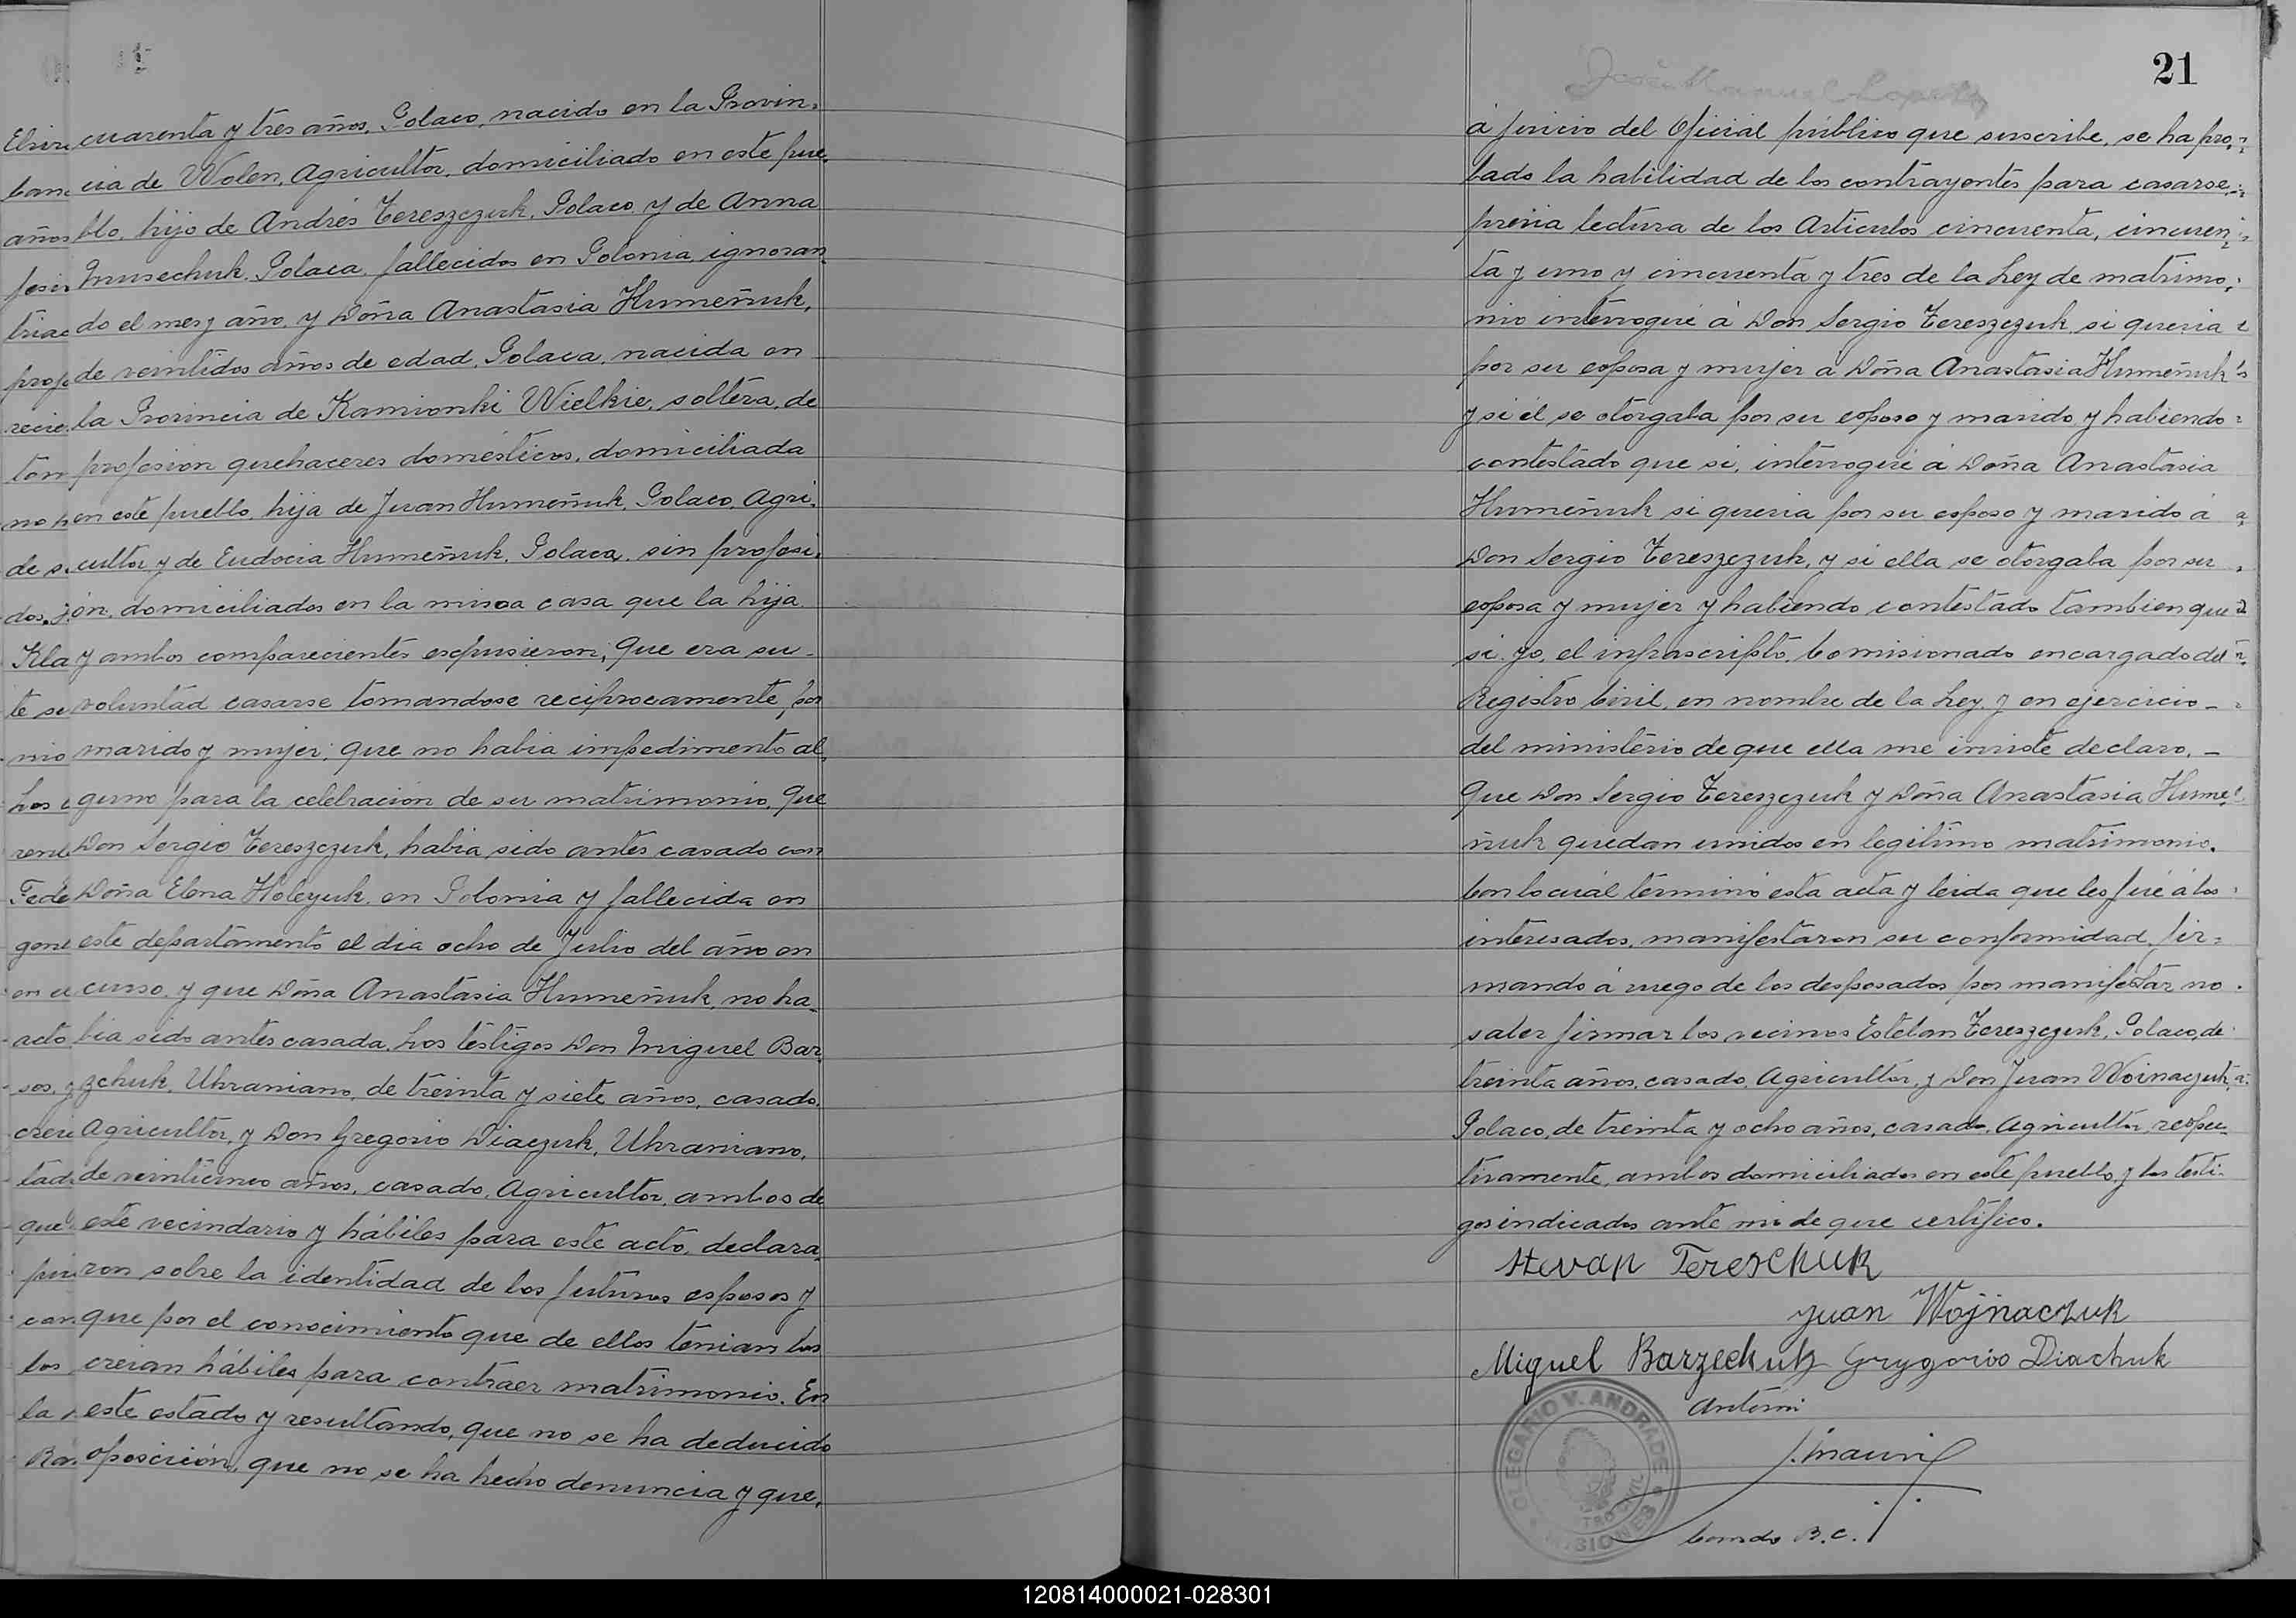 cuarenta y tres años, Polaco, nacido en la Provin,
cia de Wolen, Agricultor, domiciliado en este pue,
blo, hijo de Andrés Tereszczuk, Polaco y de Anna
Musechuk, Polaca, fallecidos en Polonia, ignoran,
do el mes y año, y Doña Anastasia Humeñuk,
de veintidos años de edad, Polaca, nacida en
la Provincia de Kamionki Wielkie, soltera, de
profesion quehaceres domésticos, domiciliada
en este pueblo, hija de Juan Humeñuk, Polaco, Agri,
cultor y de Eudocia Humeñuk, Polaca, sin profesi,
ón, domiciliados en la misoa casa que la hija
y ambos comparecientes espusieron; Que era su
voluntad casarse tomandose reciprocamente por
marido y mujer; que no habia impedimento al,
guno para la celebracion de su matrimonio, Que
Don Sergio Tereszczuk, habia sido antes casado con
Doña Elena Holeyuk, en Polonia y fallecida en
este departamento el dia ocho de Julio del año en
curso, y que Doña Anastasia Humeñuk, no ha,
bia sido antes casada. Los testigos Don Miguel Bar,
zchuk, Ukraniano, de treinta y siete años, casado,
Agricultor, y Don Gregorio Diaczuk, Ukraniano,
de veinticinco años, casado, Agricultor, ambos de
este vecindario y hábiles para este acto, declara,
ron sobre la identidad de los futuros esposos y
que por el conocimiento que de ellos tenian los
creian hábiles para contraer matrimonio. En
este estado y resultando, que no se ha deducido
oposición, que no se ha hecho denuncia y que,
21
José Manuel
á juicio del Oficial público que suscribe, se ha pro,
bado la habilidad de los contrayentes para casarse,
previa lectura de los Articulos cincuenta, cincuen,
ta y uno y cincuenta y tres de la Ley de matrimo,
nio interrogué á Don Sergio Tereszczuk si queria
por su esposa y mujer á Doña Anastasia Humeñuk
y si él se otorgaba por su esposo y marido y habiendo
contestado que si, interrogué á Doña Anastasia
Humeñuk si queria por su esposo y marido á
Don Sergio Tereszczuk, y si ella se otorgaba por su
esposa y mujer y habiendo contestado tambien que
si. yo, el infrascripto, Comisionado encargado del
Registro Civil, en nombre de la Ley, y en ejercicio
del ministerio de que ella me inviste declaro.
Que Don Sergio Tereszczuk y Doña Anastasia Hume,
ñuk quedan unidos en legitimo matrimonio.
Con lo cuál terminó esta acta y leida que les fué á los
interesados, manifestaron su conformidad, fir=
mando á ruego de los desposados por manifestar no
saber firmar los vecinos Esteban Tereszczuk, Polaco, de
treinta años, casado, Agricultor, y Don Juan Woinaczuk,
Polaco, de treinta y ocho años, casado, Agricultor, respec
tivamente, ambos domiciliados en este pueblo, y los testi
gos indicados ante mi de que certifico.
Stevan Tereschuk
Juan Wojnaczuk
Miguel Barzechuk Grygorio Diachuk
OLEGARIO V. ANDRADE
MISIONES
Comdo R.C.
120814000021-028301